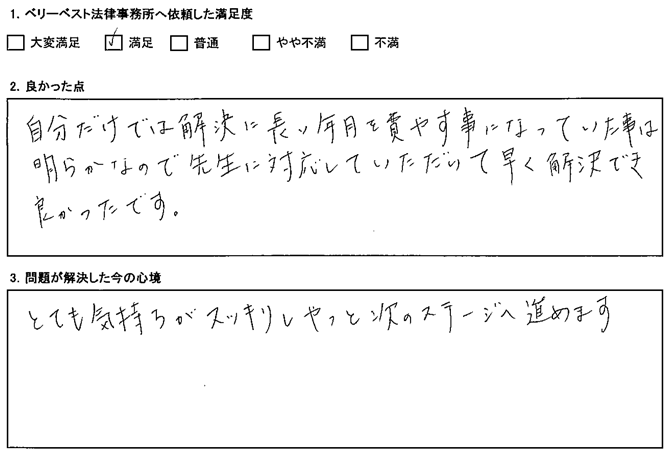 1. ベリーベスト法律事務所へ依頼した満足度
□ 大変満足 ☑ 満足 □ 普通 □ やや不満 □ 不満
2. 良かった点
自分だけでは解決に長い年月を費やす事になっていた事は
明らかなので先生に対応していただいて早く解決でき
良かったです。
3. 問題が解決した今の心境
とても気持ちがスッキリしやっと次のステージへ進めます